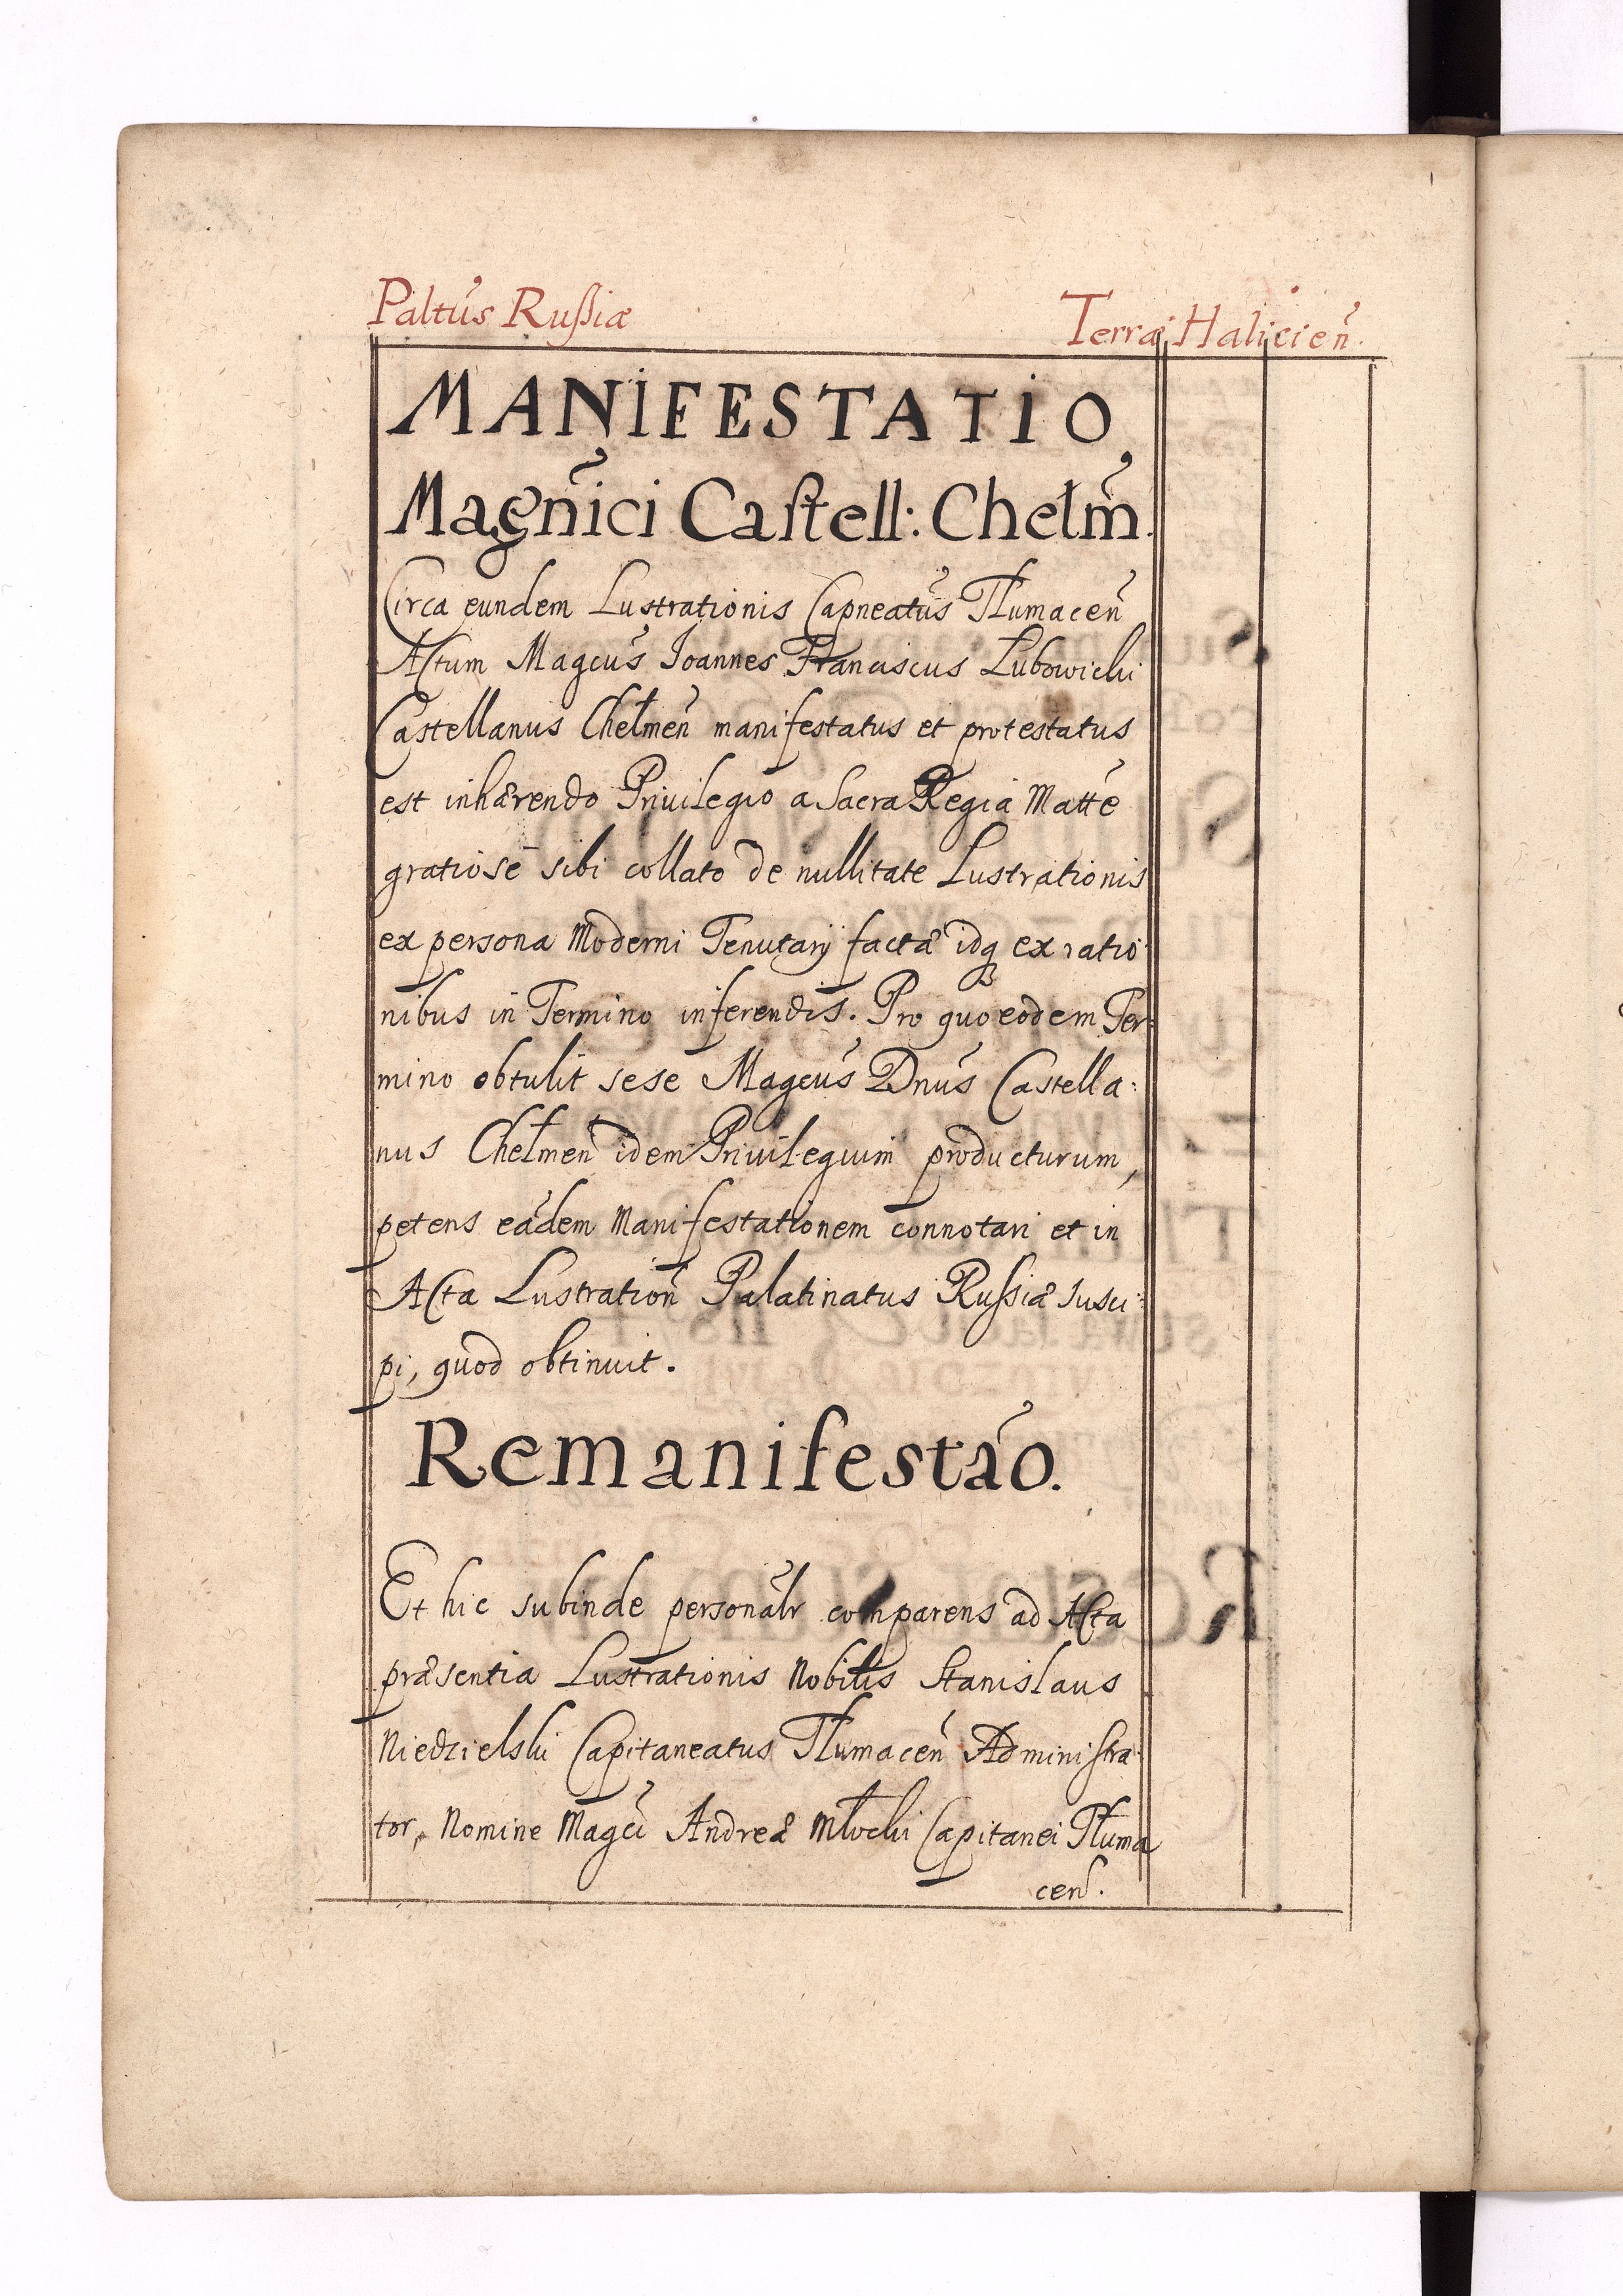 Paltus Rußiæ
Terræ Halicień.
MANIFESTATIO
Magñici Castell: Chełm̃.
Circa eundem Lustrationis Capneatus Tłumaceń
Actum Magcus Joannes Franciscus Lubowichi
Castellanus Chełmeń manifestatus et protestatus
est inhærendo Priuilegio a Sacra Regia Matte
gratiose sibi collato de nullitate Lustrationis
ex persona Moderni Tenutarÿ factæ idq ex ratio-
nibus in Termino inferendis. Pro quo eodem Ter-
mino obtulit sese Magcus Dnus Castella-
nus Chełmeń idem Priuilegium producturum,
petens eadem Manifestationem connotari et in
Acta Lustrations Palatinatus Rußiæ susci-
pi, quod obtinuit.
Remanifestão.
Et hic subinde personalr comparens ad Acta
præsentia Lustrationis Nobilis Stanislaus
Niedzielski Capitaneatus Tłumaceń Administra-
tor, Nomine Magci Andreæ Młochi Capitanei Tłuma
ceń.